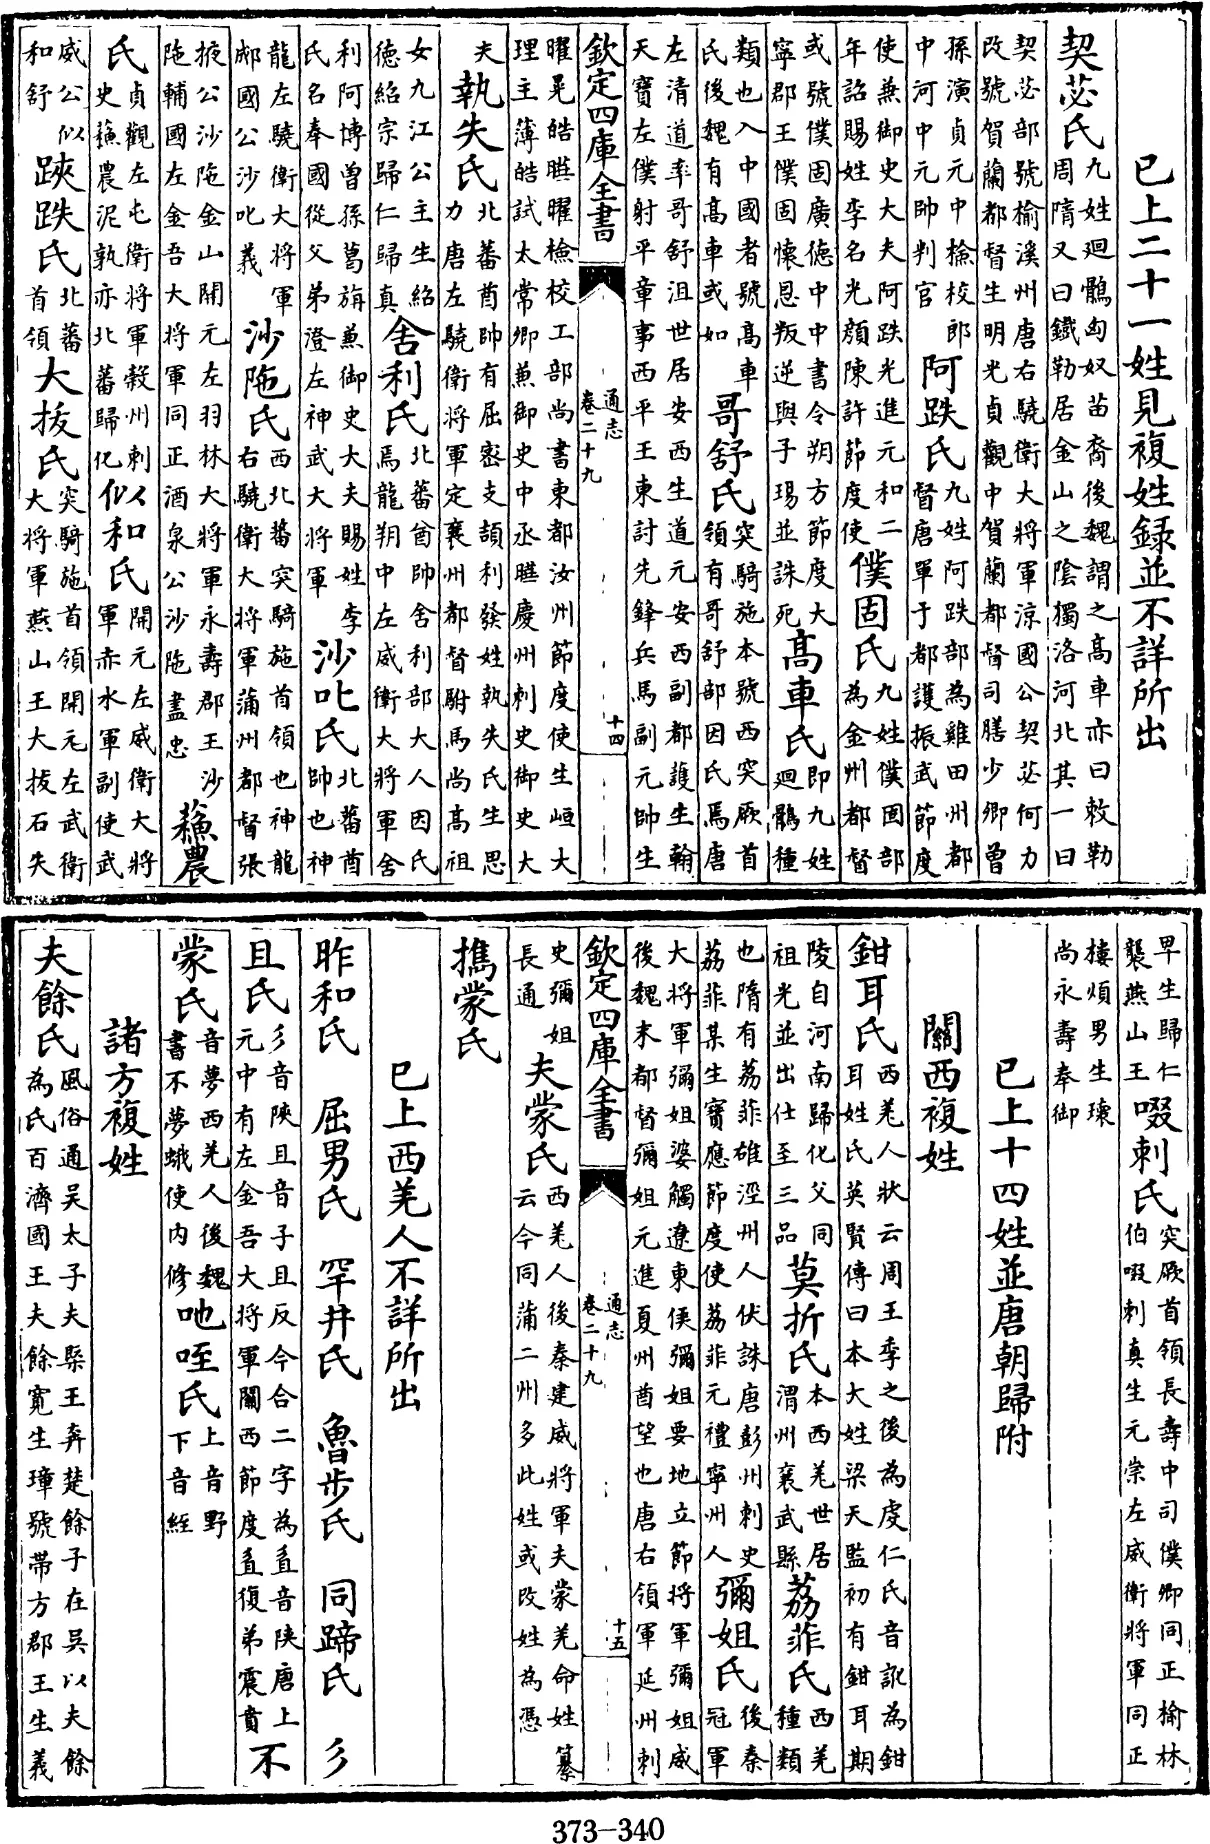 已上二十一姓見複姓録並不詳所出
契苾氏九姓廻鶻匈奴苗裔後魏謂之髙車亦曰敕勒
周隋又曰鐡勒居金山之陰獨洛河北其一曰
契苾部號榆溪州唐右驍衛大將軍涼國公契苾何力
改號賀蘭都督生明光貞觀中賀蘭都督司膳少卿曽
孫演貞元中檢校郎
中河中元帥判官
阿跌氏九姓阿跌部為雞田州都
督唐單于都護振武節度
使兼御史大夫阿跌光進元和二
年詔賜姓李名光顔陳許節度使
僕固氏九姓僕固部
為金州都督
或號僕固廣徳中中書令朔方節度大
寧郡王僕固懐恩叛逆與子瑒並誅死
髙車氏即九姓
廻鶻種
類也入中國者號髙車
氏後魏有髙車或如
哥舒氏突騎施本號西突厥首
領有哥舒部因氏焉唐
左清道率哥舒沮世居安西生道元安西副都護生翰
天寳左僕射平章事西平王東討先鋒兵馬副元帥生
欽定四庫全書
通志
卷二十九
十四
曜晃皓㬢曜檢校工部尚書東都汝州節度使生峘大
理主簿皓試太常卿兼御史中丞㬢慶州刺史御史大
夫
執失氏北蕃酋帥有屈密支頡利發姓執失氏生思
力唐左驍衛將軍定襄州都督駙馬尚髙祖
女九江公主生紹
徳紹宗歸仁歸真
舍利氏北蕃酋帥舍利部大人因氏
焉龍朔中左威衛大將軍舍
利阿博曽孫葛旃兼御史大夫賜姓李
氏名奉國從父弟澄左神武大將軍
沙叱氏北蕃酋
帥也神
龍左驍衛大將軍
郕國公沙叱義
沙陁氏西北蕃突騎施首領也神龍
右驍衛大將軍蒲州都督張
掖公沙陁金山開元左羽林大將軍永壽郡王沙
陁輔國左金吾大將軍同正酒泉公沙陁盡忠
蘓農
氏貞觀左屯衛將軍穀州刺
史蘓農泥孰亦北蕃歸化
似和氏開元左威衛大將
軍赤水軍副使武
威公似
和舒
𨁂跌氏北蕃
首領
大拔氏突騎施首領開元左武衛
大將軍燕山王大拔石失
早生歸仁
襲燕山王
啜刺氏突厥首領長壽中司僕卿同正榆林
伯啜刺真生元崇左威衛將軍同正
樓煩男生瓌
尚永壽奉御
已上十四姓並唐朝歸附
關西複姓
鉗耳氏西羌人狀云周王季之後為虔仁氏音訛為鉗
耳姓氏英賢傳曰本大姓梁天監初有鉗耳期
陵自河南歸化父同
祖光並出仕至三品
莫折氏本西羌世居
渭州襄武縣
荔菲氏西羌
種類
也隋有荔菲雄涇州人伏誅唐彭州刺史
荔菲某生寳應節度使荔菲元禮寧州人
彌姐氏後秦
冠軍
大將軍彌姐婆觸遼東侯彌姐要地立節將軍彌姐威
後魏末都督彌姐元進夏州酋望也唐右領軍延州刺
欽定四庫全書
通志
卷二十九
十五
史彌姐
長通
夫蒙氏西羌人後秦建威將軍夫蒙羌命姓纂
云今同蒲二州多此姓或改姓為憑
㩦蒙氏
已上西羌人不詳所出
昨和氏 屈男氏 罕井氏 魯步氏 同蹄氏 彡
且氏彡音陜且音子且反今合二字為音陜唐上
元中有左金吾大將軍關西節度復弟震賁
不
蒙氏音夢西羌人後魏
書不夢蛾使内修
吔咥氏上音野
下音經
諸方複姓
夫餘氏風俗通吳太子夫槩王奔楚餘子在吳以夫餘
為氏百濟國王夫餘寛生璋號帶方郡王生義
373-340